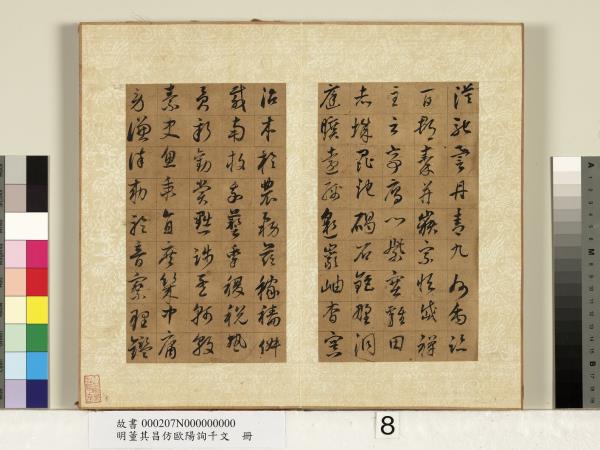 漠馳譽丹青九州禹跡
百郡秦并嶽宗恆岱禪
主云亭雁門紫塞雞田
赤城昆池碣石鉅野洞
庭曠遠綿邈巖岫杳冥
治本於農務茲稼穡俶
載南畝我藝黍稷稅熟
貢新勸賞黜陟孟軻敦
素史魚秉直庶幾中庸
勞謙謹敕聆音察理鑑
故書 000207N000000000
明董其昌仿歐陽詢千文 冊
8